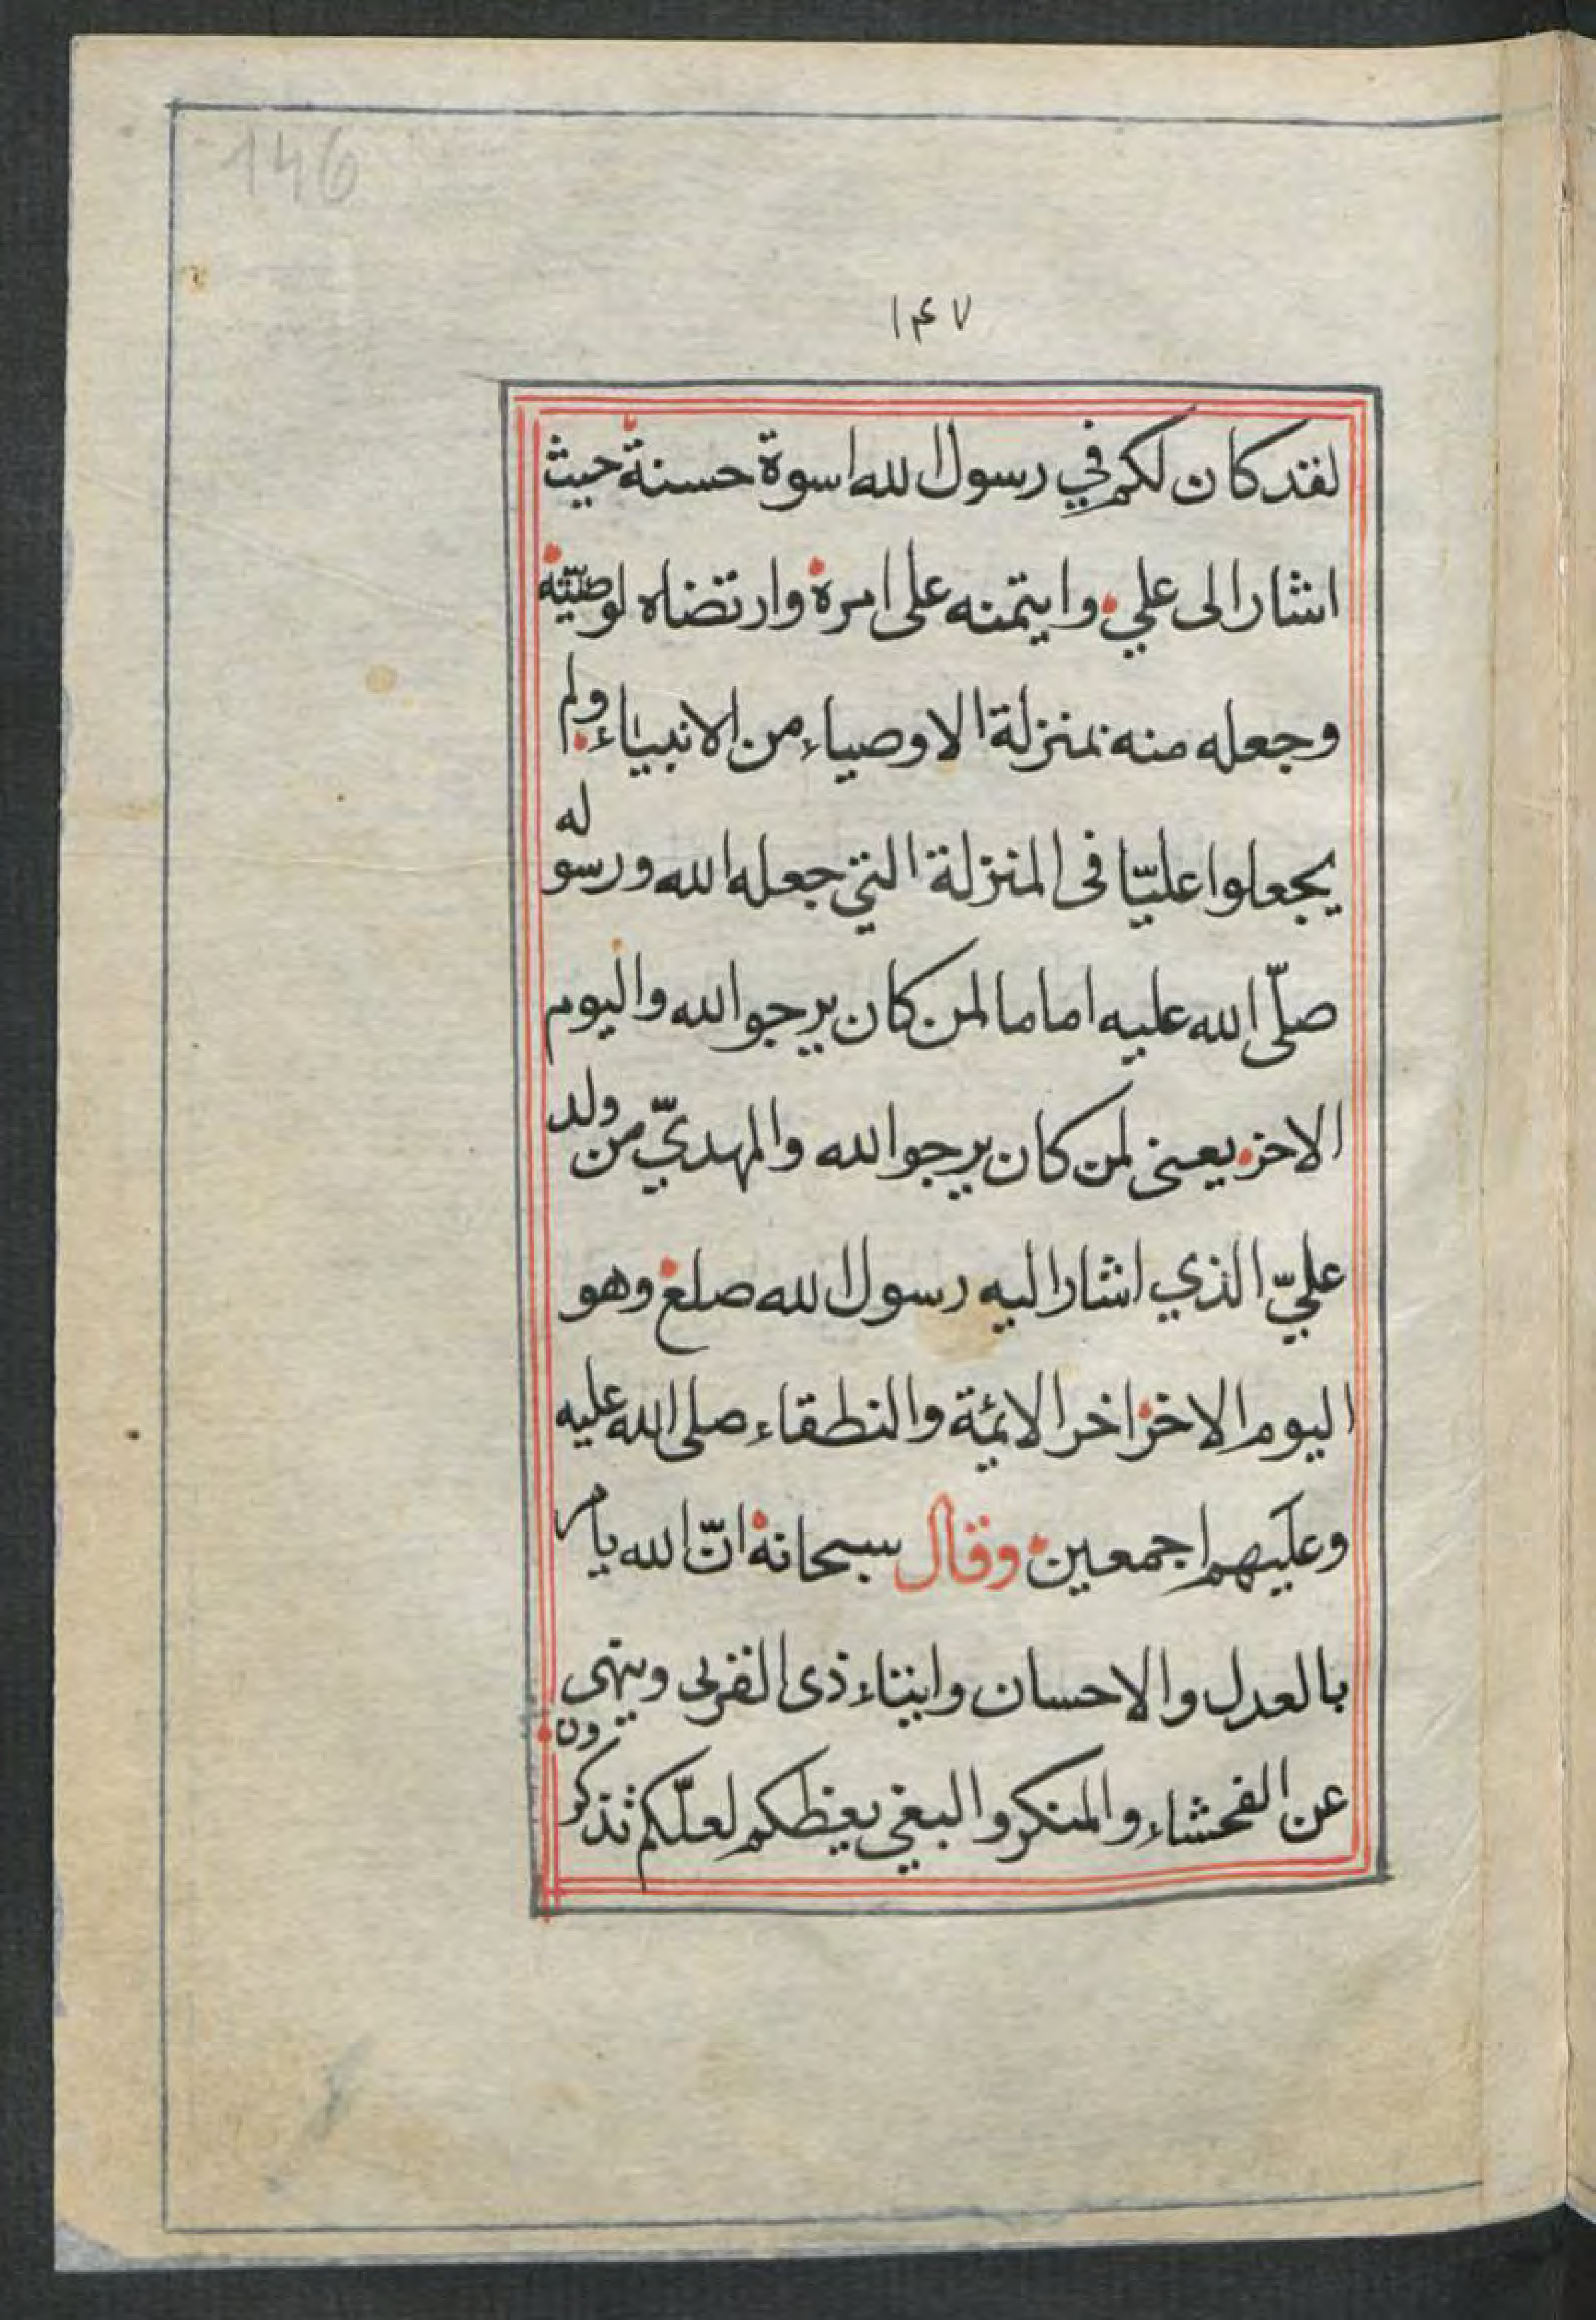 146
١٤٧
لقد كان لكم في رسول الله اسوة حسنة حيث
اشار الى علي وايتمنه على امره وارتضاه لوصيّته
وجعله منه بمنزلة الاوصياء من الانبياء ولم
يجعلوا عليّا فى المنزلة التي جعله الله ورسوله
صلّى الله عليه اماما لمن كان يرجو الله واليوم
الاخر يعنى لمن كان يرجوا الله والمهديّ من ولد
عليّ الذي اشار اليه رسول الله صلع وهو
اليوم الاخر اخر الائمة والنطقاء صلى الله عليه
وعليهم اجمعين وقال سبحانه انّ الله يامر
بالعدل والاحسان وايتاء ذى القربى وينهى
عن الفحشاء والمنكر والبغي يعظكم لعلّكم تذكرون